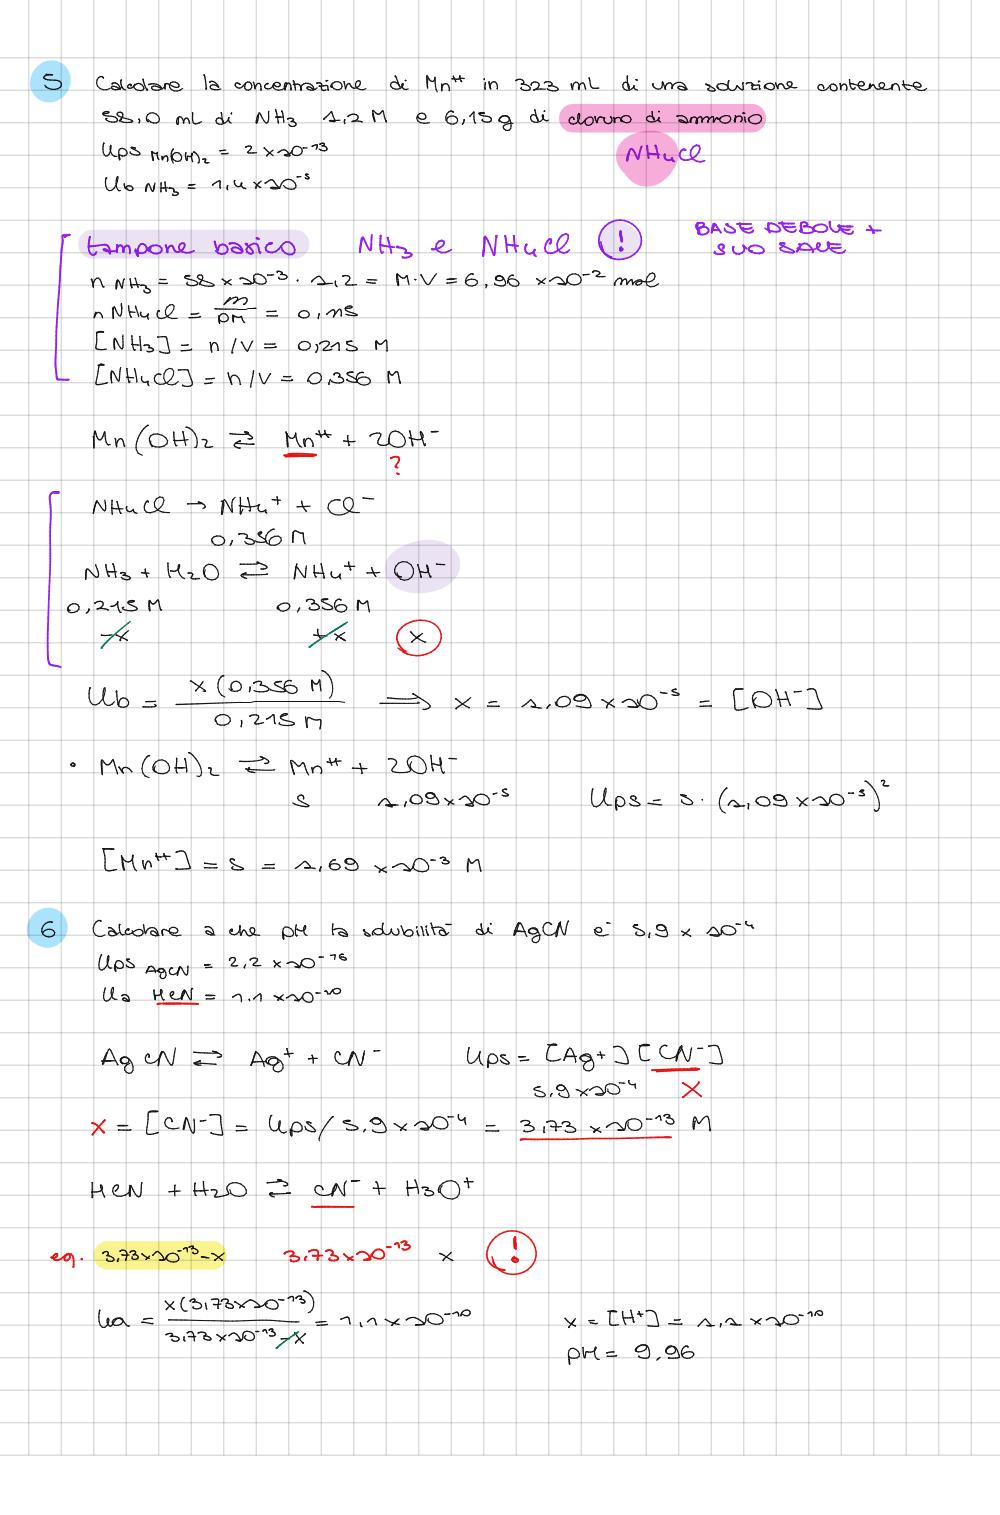 5 Calcolare la concentrazione di Mn⁺⁺ in 323 mL di una soluzione contenente
58,0 mL di NH3 1,2 M e 6,15g di cloruro di ammonio
Kps Mn(OH)2 = 2 x 10⁻¹³ NH4Cl
Kb NH3 = 1,4 x 10⁻⁵
tampone basico NH3 e NH4Cl ! BASE DEBOLE +
SUO SALE
n NH3 = 58 x 10⁻³ · 1,2 = M·V = 6,96 x 10⁻² mol
n NH4Cl = m/PM = 0,115
[NH3] = n/V = 0,215 M
[NH4Cl] = n/V = 0,356 M
Mn(OH)2 ⇌ Mn⁺⁺ + 2OH⁻
?
NH4Cl → NH4⁺ + Cl⁻
0,356 M
NH3 + H2O ⇌ NH4⁺ + OH⁻
0,215 M 0,356 M
-x +x x
Kb = x (0,356 M) / 0,215 M ⟹ x = 1,09 x 10⁻⁵ = [OH⁻]
• Mn(OH)2 ⇌ Mn⁺⁺ + 2OH⁻
s 1,09 x 10⁻⁵ Kps = s · (1,09 x 10⁻⁵)²
[Mn⁺⁺] = s = 1,69 x 10⁻³ M
6 Calcolare a che pH la solubilità di AgCN è 5,9 x 10⁻⁴
Kps AgCN = 2,2 x 10⁻¹⁶
Ka HCN = 1,1 x 10⁻¹⁰
AgCN ⇌ Ag⁺ + CN⁻ Kps = [Ag+] [CN⁻]
5,9 x 10⁻⁴ x
x = [CN⁻] = Kps/5,9 x 10⁻⁴ = 3,73 x 10⁻¹³ M
HCN + H2O ⇌ CN⁻ + H3O⁺
eq. 3,73 x 10⁻¹³ - x 3,73 x 10⁻¹³ x !
Ka = x (3,73 x 10⁻¹³) / 3,73 x 10⁻¹³ - x = 1,1 x 10⁻¹⁰ x = [H⁺] = 1,1 x 10⁻¹⁰
pH = 9,96